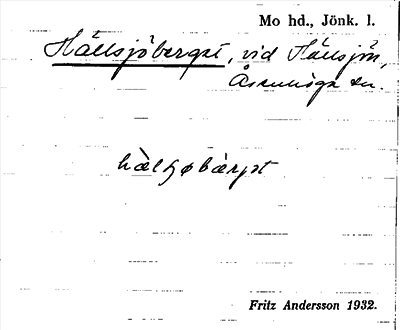 Mo hd., Jönk. l.
Hällsjöberget, vid Hällsjön,
Åsenhöga sn.
hàlɧøbærjət
Fritz Andersson 1932.